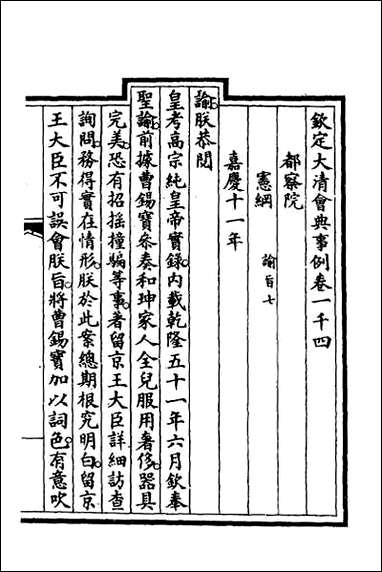 欽定大清會典事例卷一千四
都察院
憲綱 諭旨七
嘉慶十一年
諭朕恭閱
皇考高宗純皇帝實錄內載乾隆五十一年六月欽奉
聖諭前據曹錫寶叅奏和珅家人全兒服用奢侈器具
完美恐有招搖撞騙等事著留京王大臣詳細訪查
詢問務得實在情形朕於此案總期根究明白留京
王大臣不可誤會朕旨將曹錫寶加以詞色有意吹